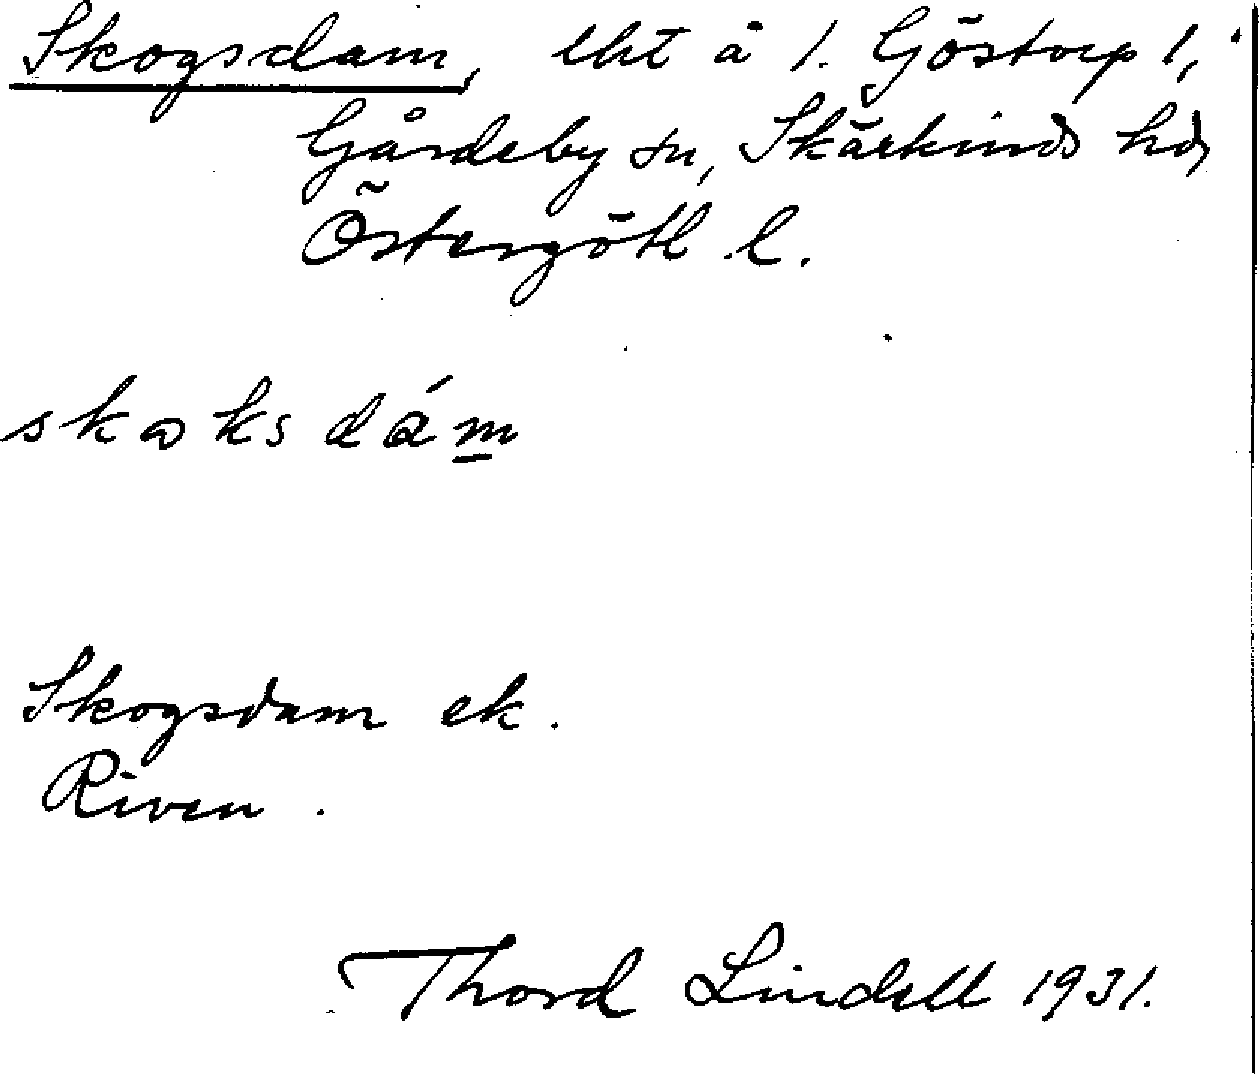 Skogsdam, lht å 1. Göstorp 1,
Gårdeby sn, Skärkinds hd,
Östergötl l.
skɷksdám
Skogsdam ek.
Riven.
Thord Lindell 1931.